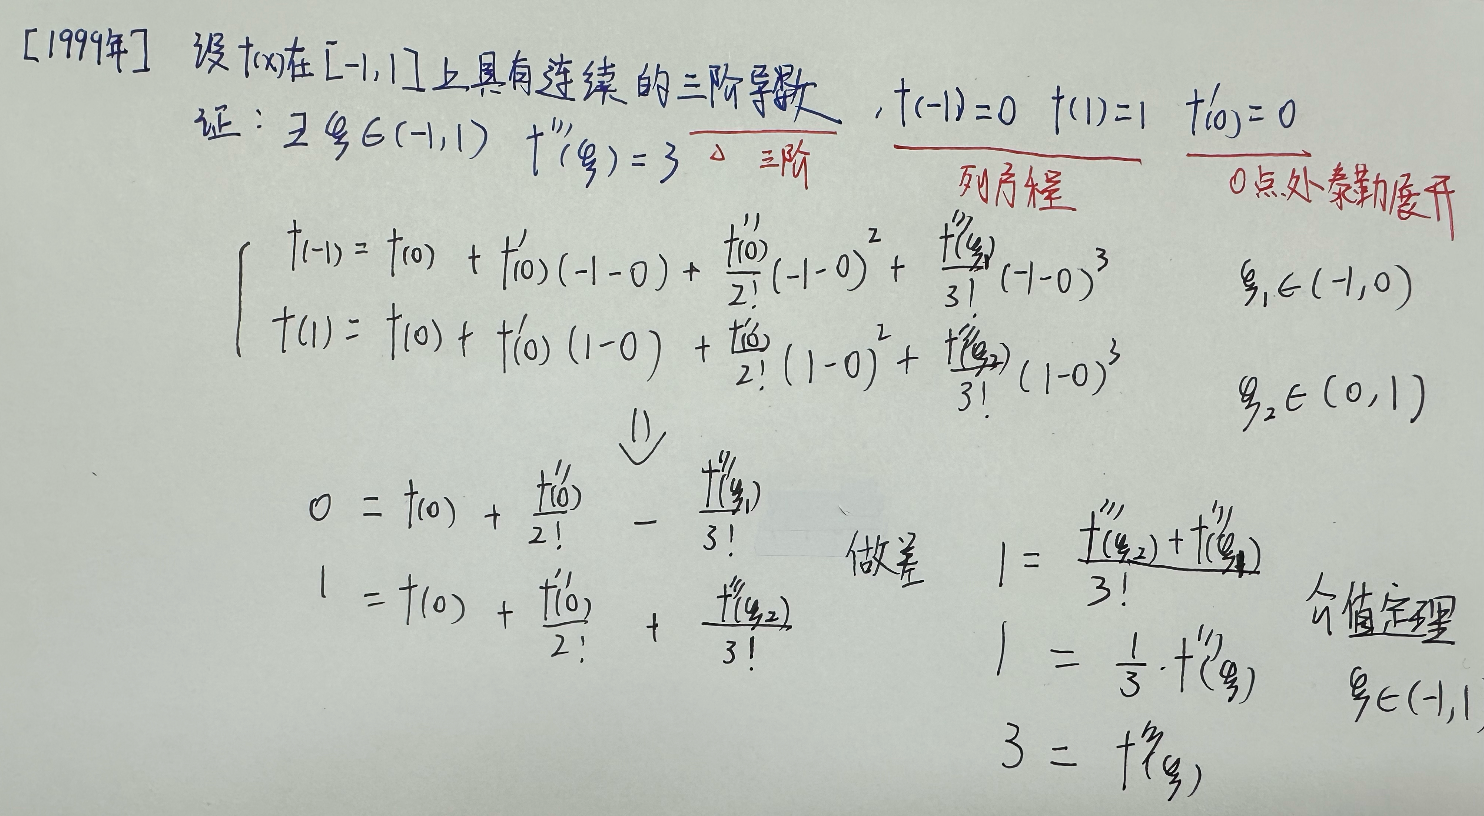 [1999年] 设f(x)在[-1,1]上具有连续的三阶导数, f(-1)=0 f(1)=1 f'(0)=0
证: ∃ξ∈(-1,1) f'''(ξ)=3
△ 三阶
列方程
0点处泰勒展开
f(-1) = f(0) + f'(0)(-1-0) + f''(0)/2! (-1-0)² + f'''(ξ₁)/3! (-1-0)³ ξ₁∈(-1,0)
f(1) = f(0) + f'(0)(1-0) + f''(0)/2! (1-0)² + f'''(ξ₂)/3! (1-0)³ ξ₂∈(0,1)
⇓
0 = f(0) + f''(0)/2! - f'''(ξ₁)/3!
1 = f(0) + f''(0)/2! + f'''(ξ₂)/3!
做差
1 = (f'''(ξ₂)+f'''(ξ₁))/3!
介值定理
1 = 1/3 · f'''(ξ) ξ∈(-1,1
3 = f'''(ξ)